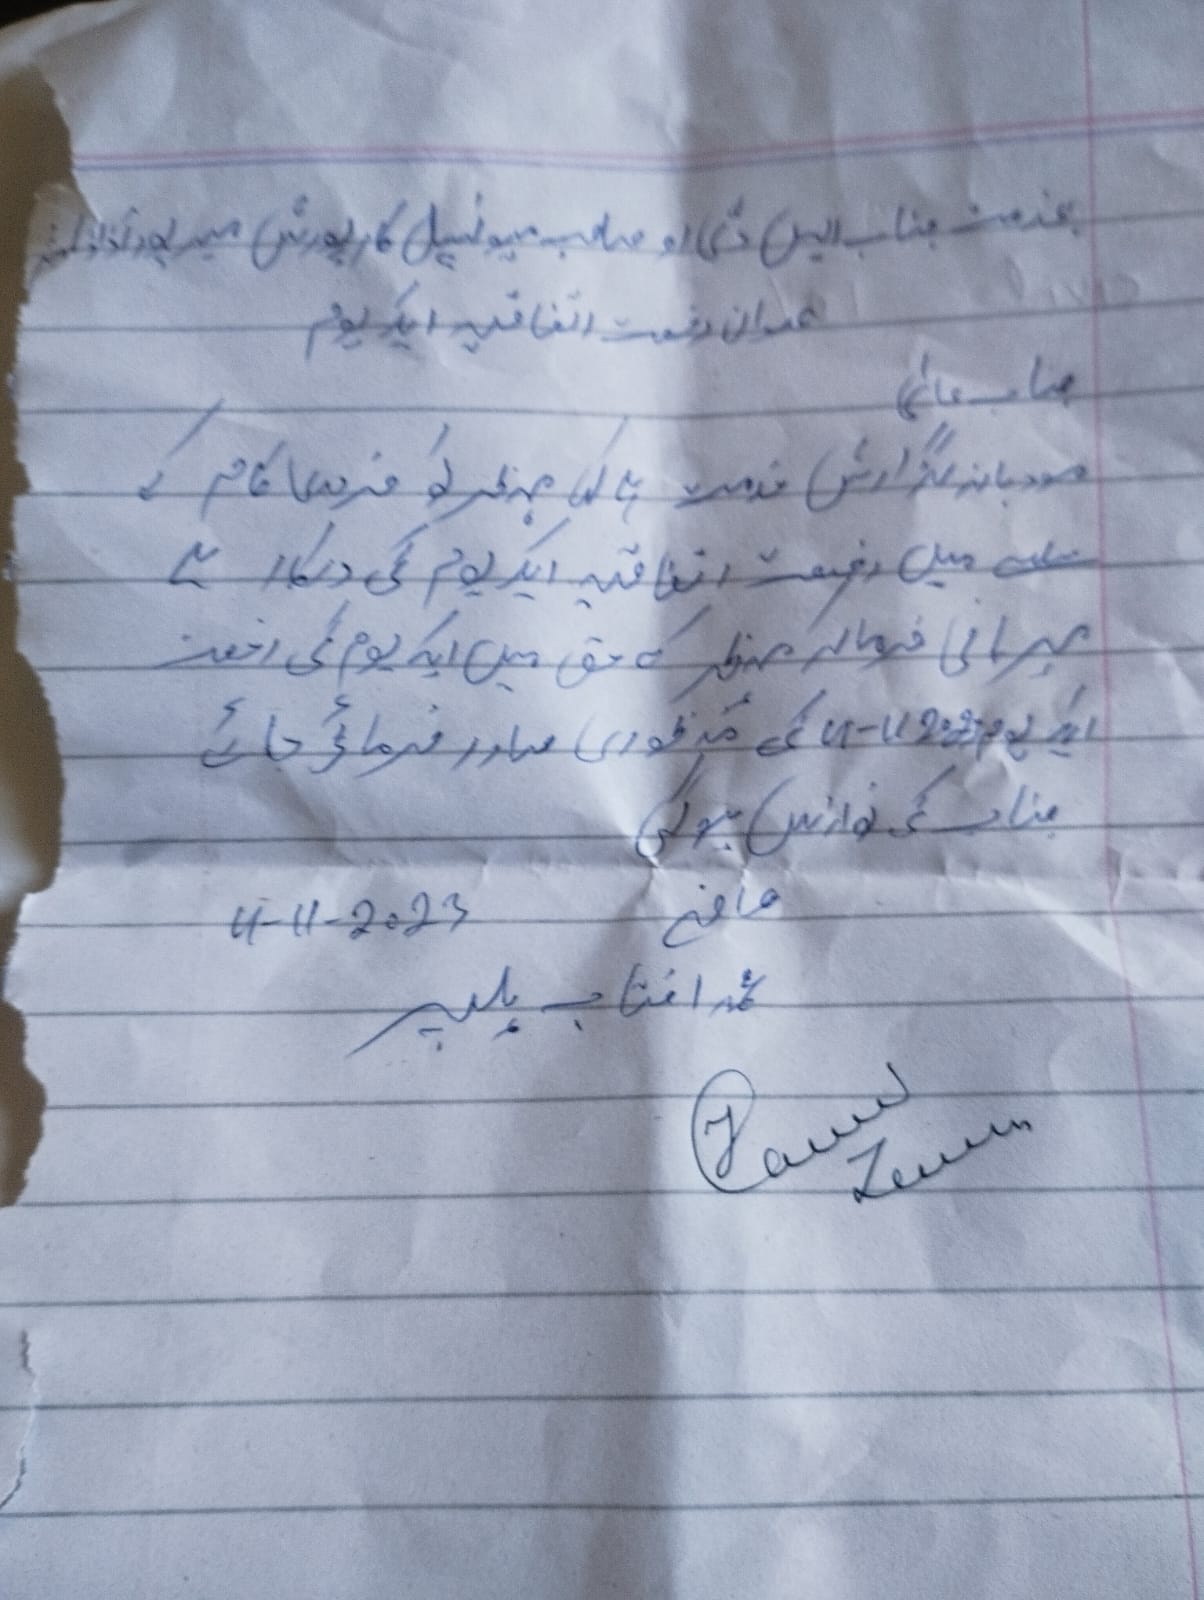 بخدمت جناب ایس ڈی او صاحب میونسپل کارپورشن میرپور آزاد کشمیر
عنوان رخصت اتفاقیہ ایک یوم
جناب عالی
مودبانہ گزارش خدمت ہے کہ مظہر کو ضروری کام کے
سلسلے میں رخصت اتفاقیہ ایک یوم کی درکار ہے
مہربانی فرما کر مظہر کے حق میں ایک یوم کی رخصت
ایک یوم کی منظوری صادر فرمائی جائے
جناب کی نوازش ہو گی
11-11-2023
محمد افتاب پلمبر